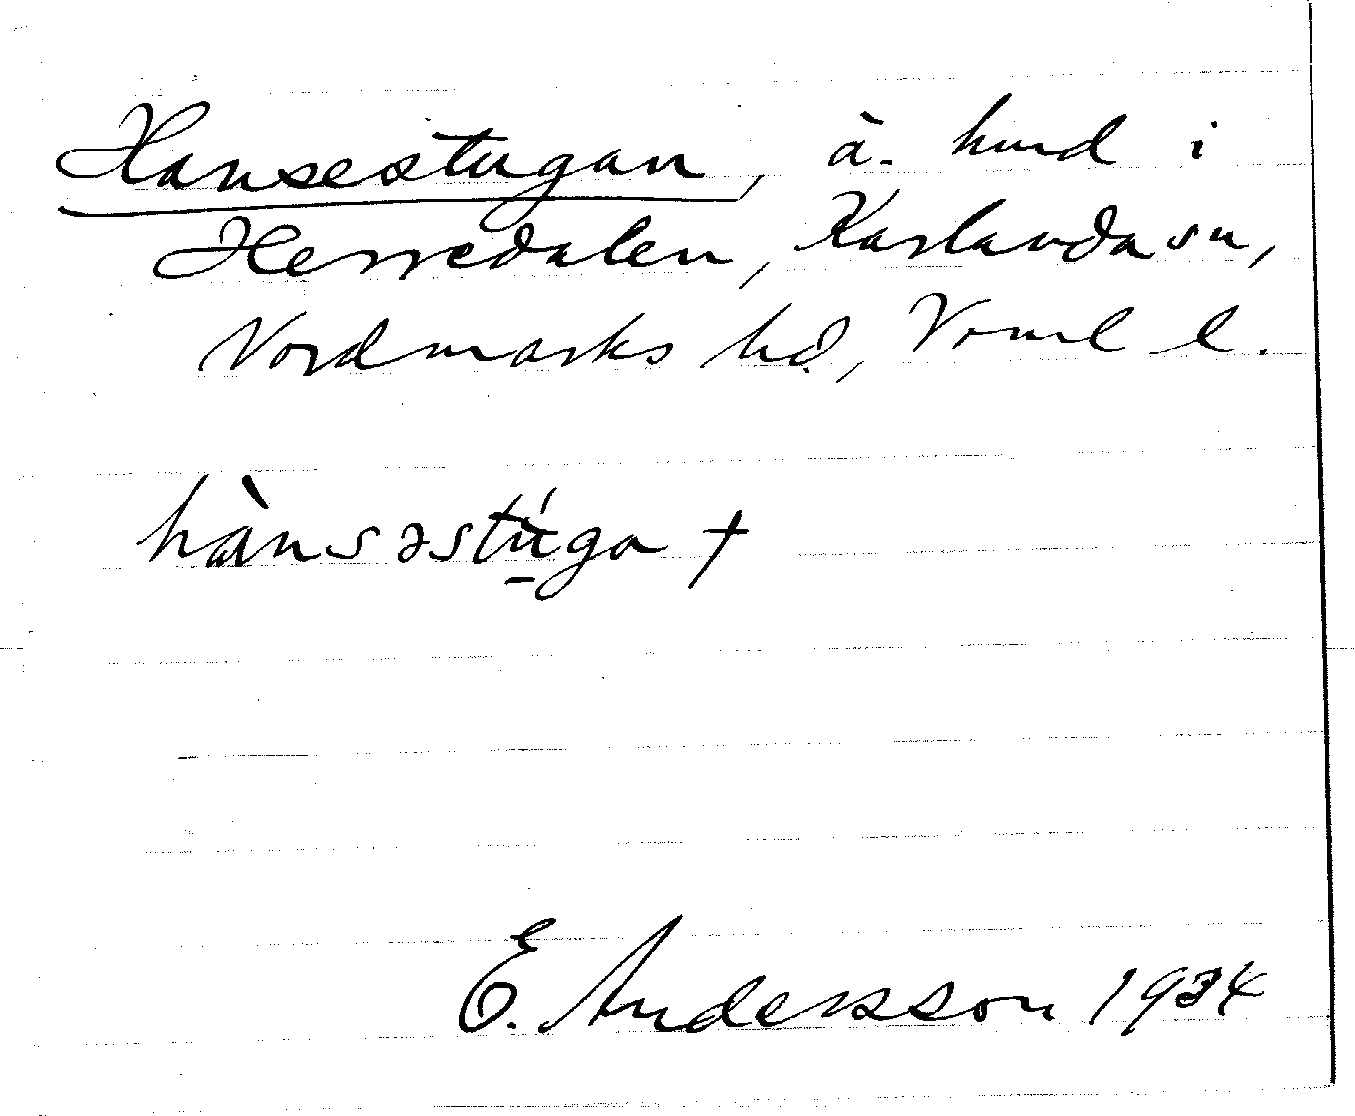 Hansestugan, å. hmd i
Herredalen, Karlanda sn,
Nordmarks hd, Vrml l.
hànsəstú̱ga †
E. Andersson 1934